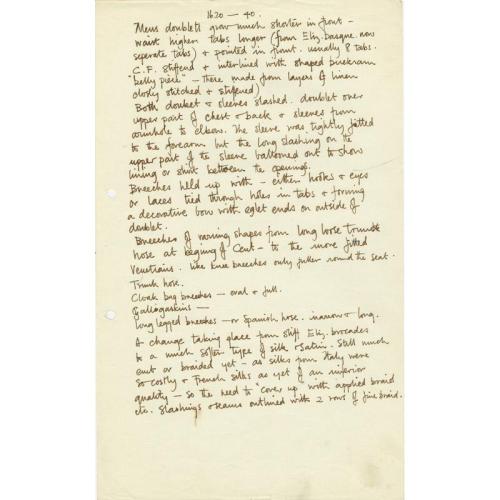 1620 — 40.
Mens doublets grow much shorter in front -
waist higher tabs longer (from Eliz. basque. now
seperate tabs) + pointed in front. usually 8 tabs.
C.F. stiffend + interlined with shaped buckram
"belly piece" - these made from layers of linen
closly stitched + stiffened)
Both doublet + sleeves slashed. doublet over
upper part of chest + back + sleeves from
armhole to elbow. The sleeve was tightly fitted
to the forearm but the long slashing on the
upper part of the sleeve balloned out to show
lining or shirt between the openings.
Breeches held up with - either hooks + eyes
or laces tied through holes in tabs + forming
a decorative bow with eglet ends on outside of
doublet.
Breeches of varying shapes from long loose trunk
hose at begining of Cent - to the more fitted
Venetians. like knee breeches only fuller round the seat.
Trunk hose.
Cloak bag breeches - oval + full.
Galligaskins -
Long legged breeches - or Spanish hose. narrow + long.
A change taking place from stiff Eliz. brocades
to a much softer type of silk + satin. Still much
cut or braided yet - as silks from Italy were
so costly + French silks as yet of an inferior
quality - so the need to "cover up" with applied braid
etc. Slashings + seams outlined with 2 rows of fine braid.